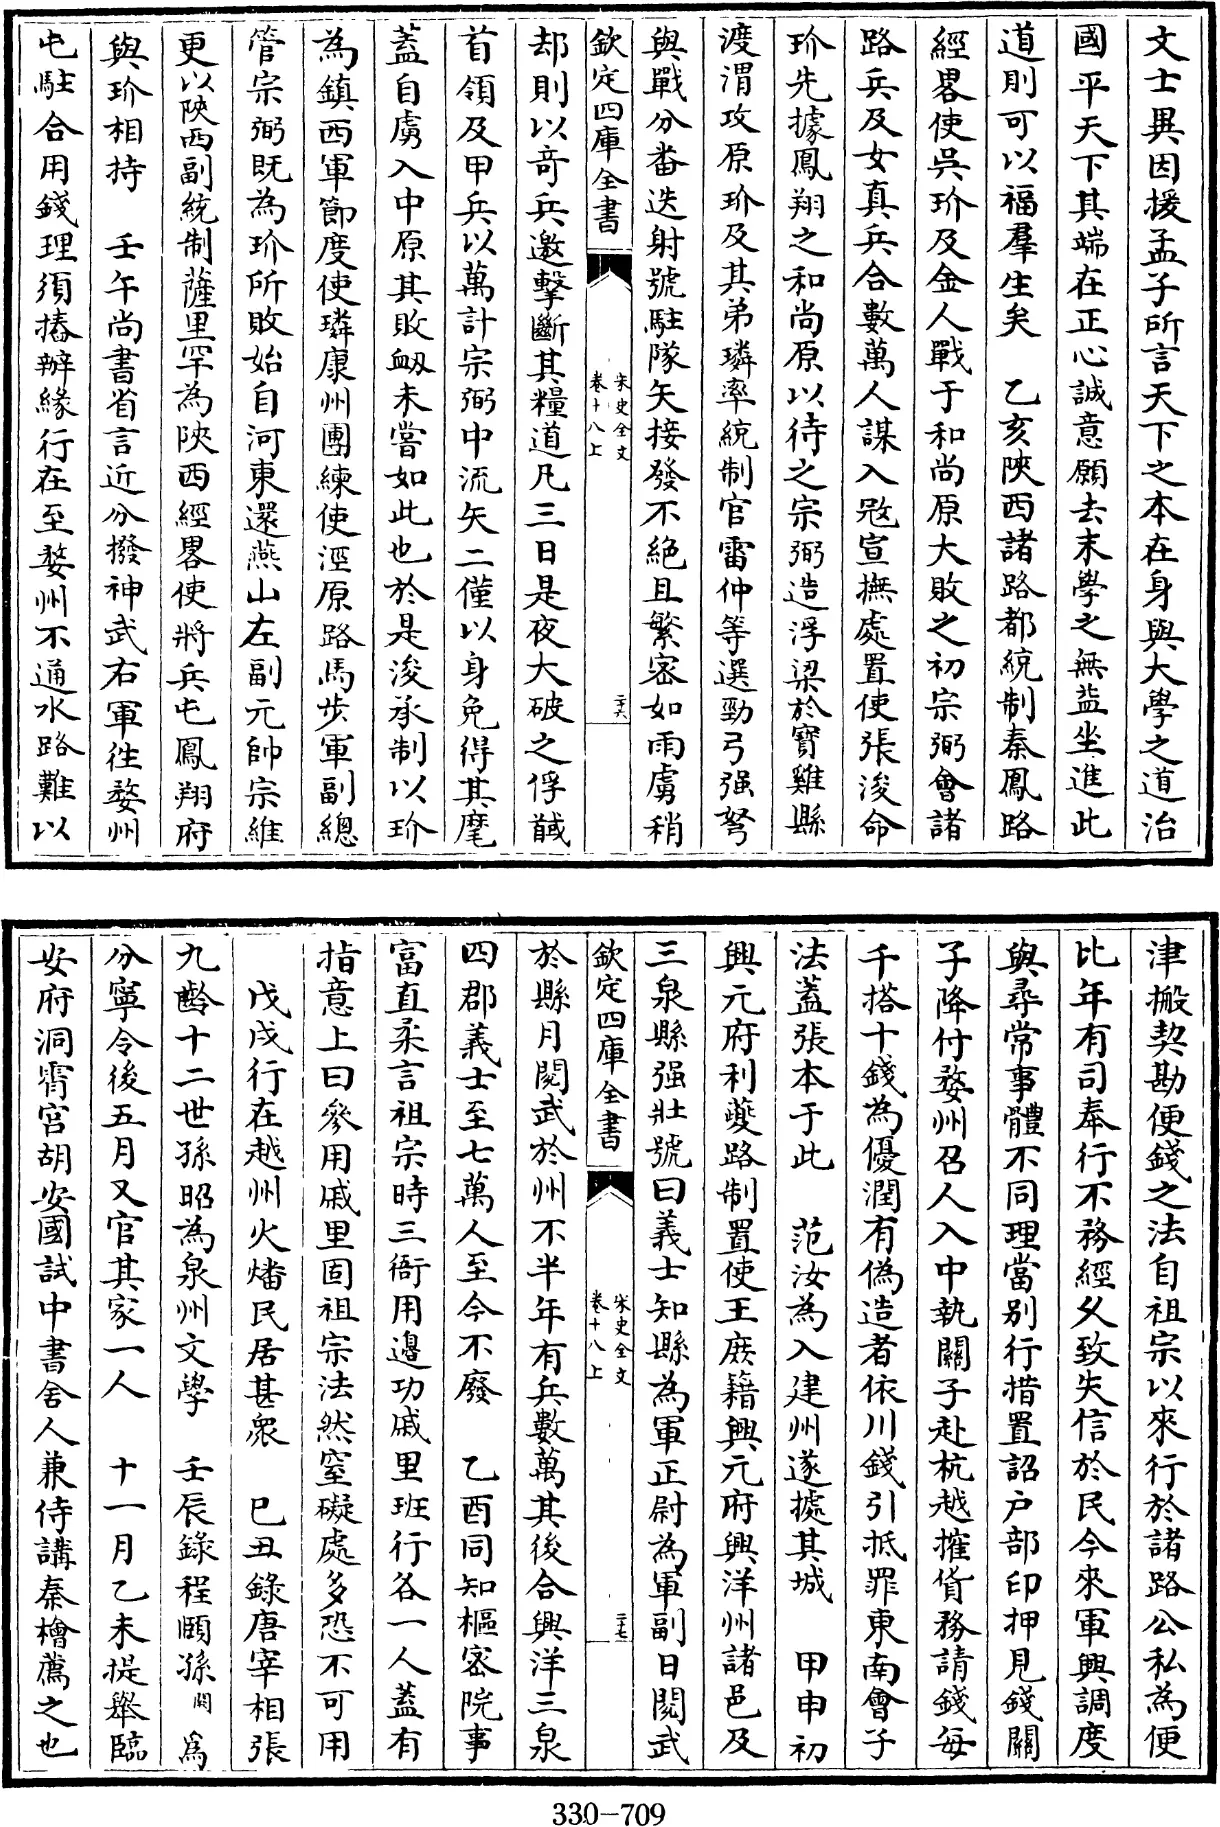 文士異因援孟子所言天下之本在身與大學之道治
國平天下其端在正心誠意願去末學之無益坐進此
道則可以福羣生矣　乙亥陜西諸路都統制秦鳳路
經畧使吳玠及金人戰于和尚原大敗之初宗弼會諸
路兵及女真兵合數萬人謀入宼宣撫處置使張浚命
玠先據鳳翔之和尚原以待之宗弼造浮梁於寶雞縣
渡渭攻原玠及其弟璘率統制官雷仲等選勁弓强弩
與戰分畨迭射號駐隊矢接發不絶且繁密如雨虜稍
欽定四庫全書
宋史全文
卷十八上
二十六
却則以竒兵邀擊斷其糧道凡三日是夜大破之俘馘
首領及甲兵以萬計宗弼中流矢二僅以身免得其麾
蓋自虜入中原其敗衂未嘗如此也於是浚承制以玠
為鎮西軍節度使璘康州團練使涇原路馬步軍副總
管宗弼既為玠所敗始自河東還燕山左副元帥宗維
更以陜西副統制薩里罕為陜西經畧使將兵屯鳳翔府
與玠相持　壬午尚書省言近分撥神武右軍往婺州
屯駐合用錢理須樁辦緣行在至婺州不通水路難以
津搬契勘便錢之法自祖宗以來行於諸路公私為便
比年有司奉行不務經久致失信於民今來軍興調度
與尋常事體不同理當别行措置詔户部印押見錢關
子降付婺州召人入中執關子赴杭越搉貨務請錢每
千搭十錢為優潤有偽造者依川錢引抵罪東南會子
法蓋張本于此　范汝為入建州遂據其城　甲申初
興元府利夔路制置使王庶籍興元府興洋州諸邑及
三泉縣强壯號曰義士知縣為軍正尉為軍副日閲武
欽定四庫全書
宋史全文
卷十八上
二十七
於縣月閲武於州不半年有兵數萬其後合興洋三泉
四郡義士至七萬人至今不廢　乙酉同知樞密院事
富直柔言祖宗時三衙用邊功戚里班行各一人蓋有
指意上曰參用戚里固祖宗法然窒礙處多恐不可用
戊戌行在越州火燔民居甚衆　已丑錄唐宰相張
九齡十二世孫昭為泉州文學　壬辰錄程頤孫闕為
分寧令後五月又官其家一人　十一月乙未提舉臨
安府洞霄宫胡安國試中書舍人兼侍講秦檜薦之也
330-709